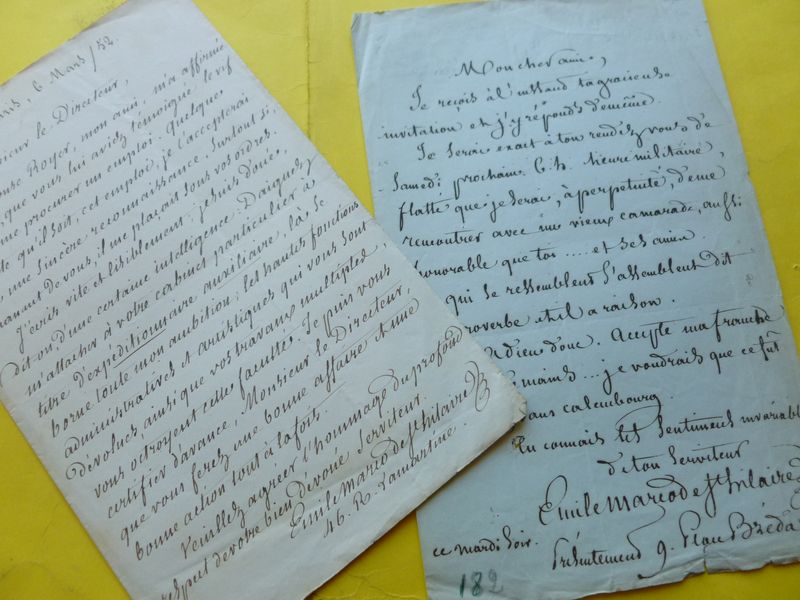 Paris, 6 Mars / 52.
Monsieur le Directeur,
Royer, mon ami, m'a affirmé
que vous lui aviez témoigné le vif
me procurer un emploi. Quelque
qu'il soit, cet emploi, je l'accepterai
une sincère reconnaissance. Surtout si,
de vous, il me plaçait sous vos ordres.
J'écris vite et lisiblement; je suis doué,
dit on, d'une certaine intelligence. Daignez
m'attacher à votre cabinet particulier à
titre d'expéditionnaire auxiliaire, là se
borne toute mon ambition; les hautes fonctions
administratives et artistiques qui vous sont
dévolues, ainsi que vos travaux multipliés,
vous octroyent cette faculté. Je puis vous
certifier d'avance, Monsieur le Directeur,
que vous ferez une bonne affaire et une
bonne action tout à la fois.
Veuillez agréer l'hommage du profond
respect de votre bien dévoué serviteur.
Emile Marco de St hilaire
46. R. Lamartine.
Mon cher ami,
Je reçois à l'instant ta gracieuse
invitation et j'y réponds de même.
Je serai exact à ton rendez vous de
Samedi prochain 6 h. heure militaire
flatté que je serai, à perpétuité, d'être
rencontrer avec un vieux camarade, aussi
honorable que toi .... et ses amis.
qui se ressemblent s'assemblent dit
proverbe et il a raison.
Adieu donc. Accepte ma franche
mains ... je voudrais que ce fût
sans calembourg.
Tu connais les sentiments invariables
de ton serviteur
Emile Marco de St hilaire
ce mardi soir.
Présentement 9. Place Bréda
182